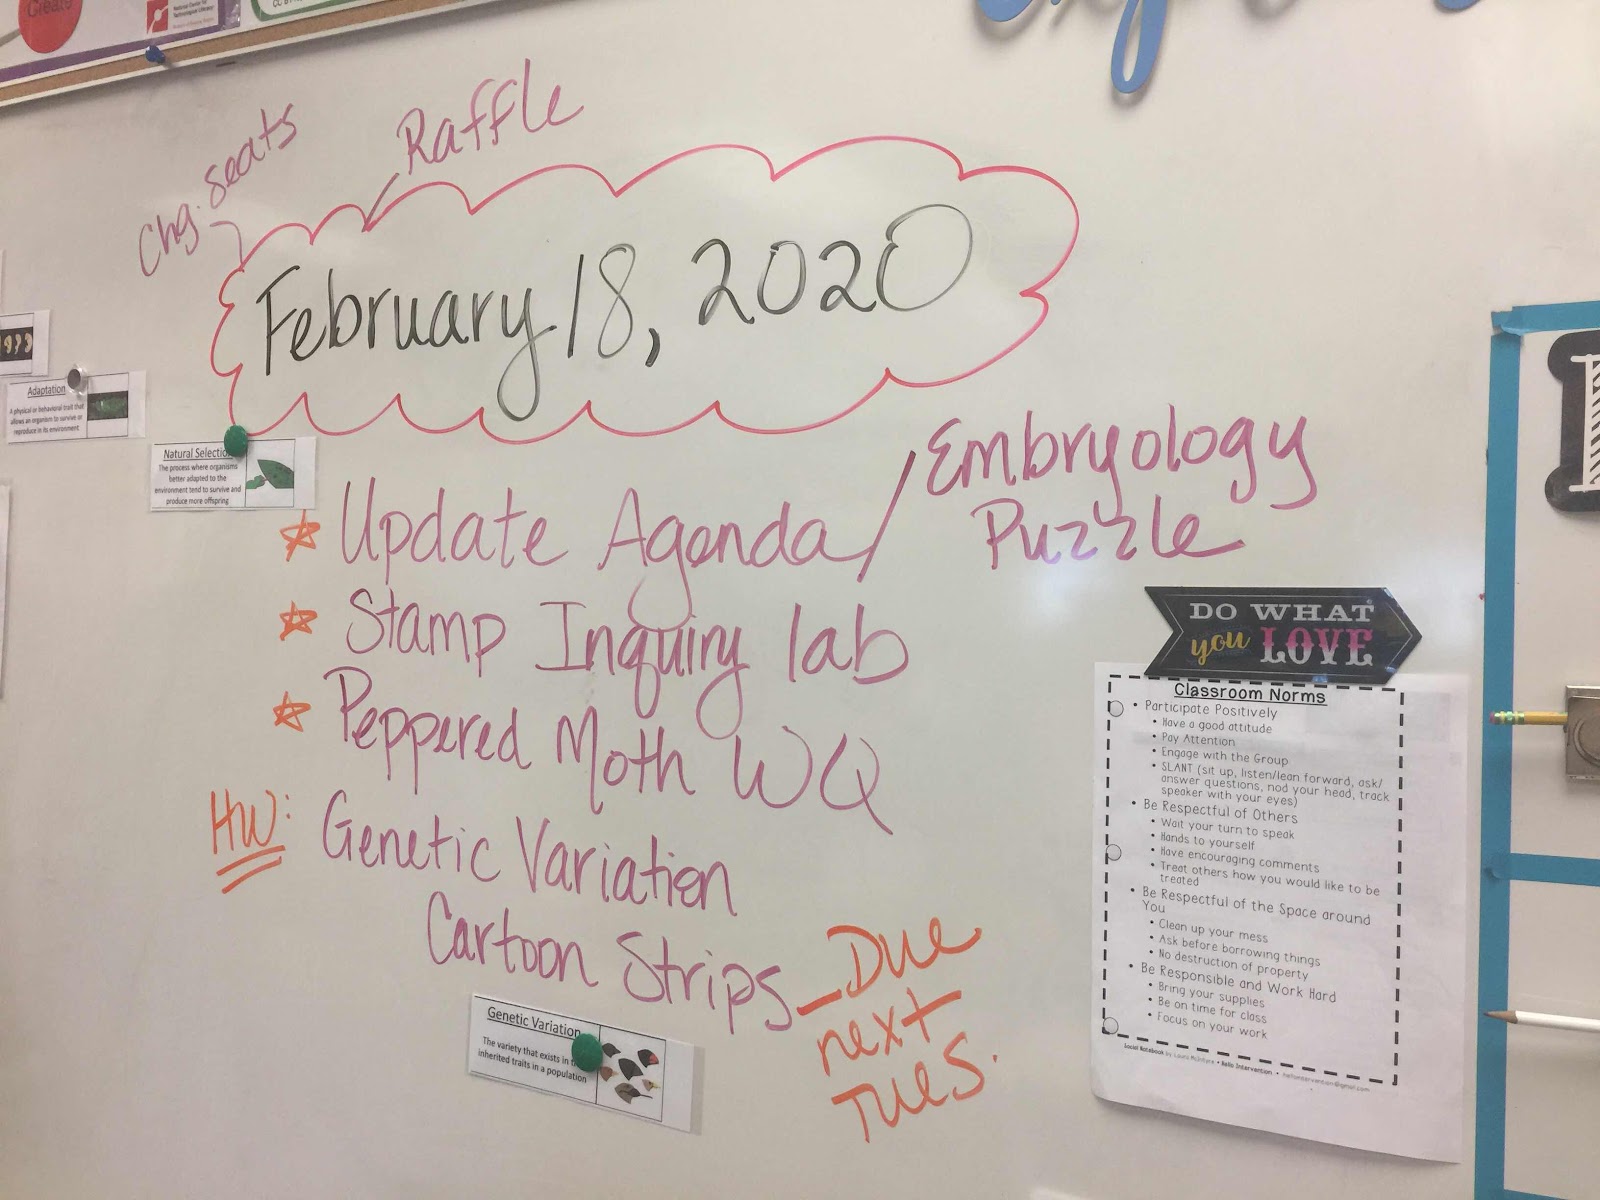 Create
National Center for
Technological Literacy
Chg. Seats
Raffle
February 18, 2020
Adaptation
A physical or behavioral trait that
allows an organism to survive or
reproduce in its environment
Natural Selection
The process where organisms
better adapted to the
environment tend to survive and
produce more offspring
Update Agenda / Embryology
Puzzle
Stamp Inquiry lab
Peppered Moth WQ
HW: Genetic Variation
Cartoon Strips - Due
next
TUES.
Genetic Variation
The variety that exists in the
inherited traits in a population
DO WHAT
you LOVE
Classroom Norms
• Participate Positively
• Have a good attitude
• Pay Attention
• Engage with the Group
• SLANT (sit up, listen/lean forward, ask/
answer questions, nod your head, track
speaker with your eyes)
• Be Respectful of Others
• Wait your turn to speak
• Hands to yourself
• Have encouraging comments
• Treat others how you would like to be
treated
• Be Respectful of the Space around
You
• Clean up your mess
• Ask before borrowing things
• No destruction of property
• Be Responsible and Work Hard
• Bring your supplies
• Be on time for class
• Focus on your work
Social Notebook by: Laura McIntyre • Hello Intervention • hellointervention@gmail.com